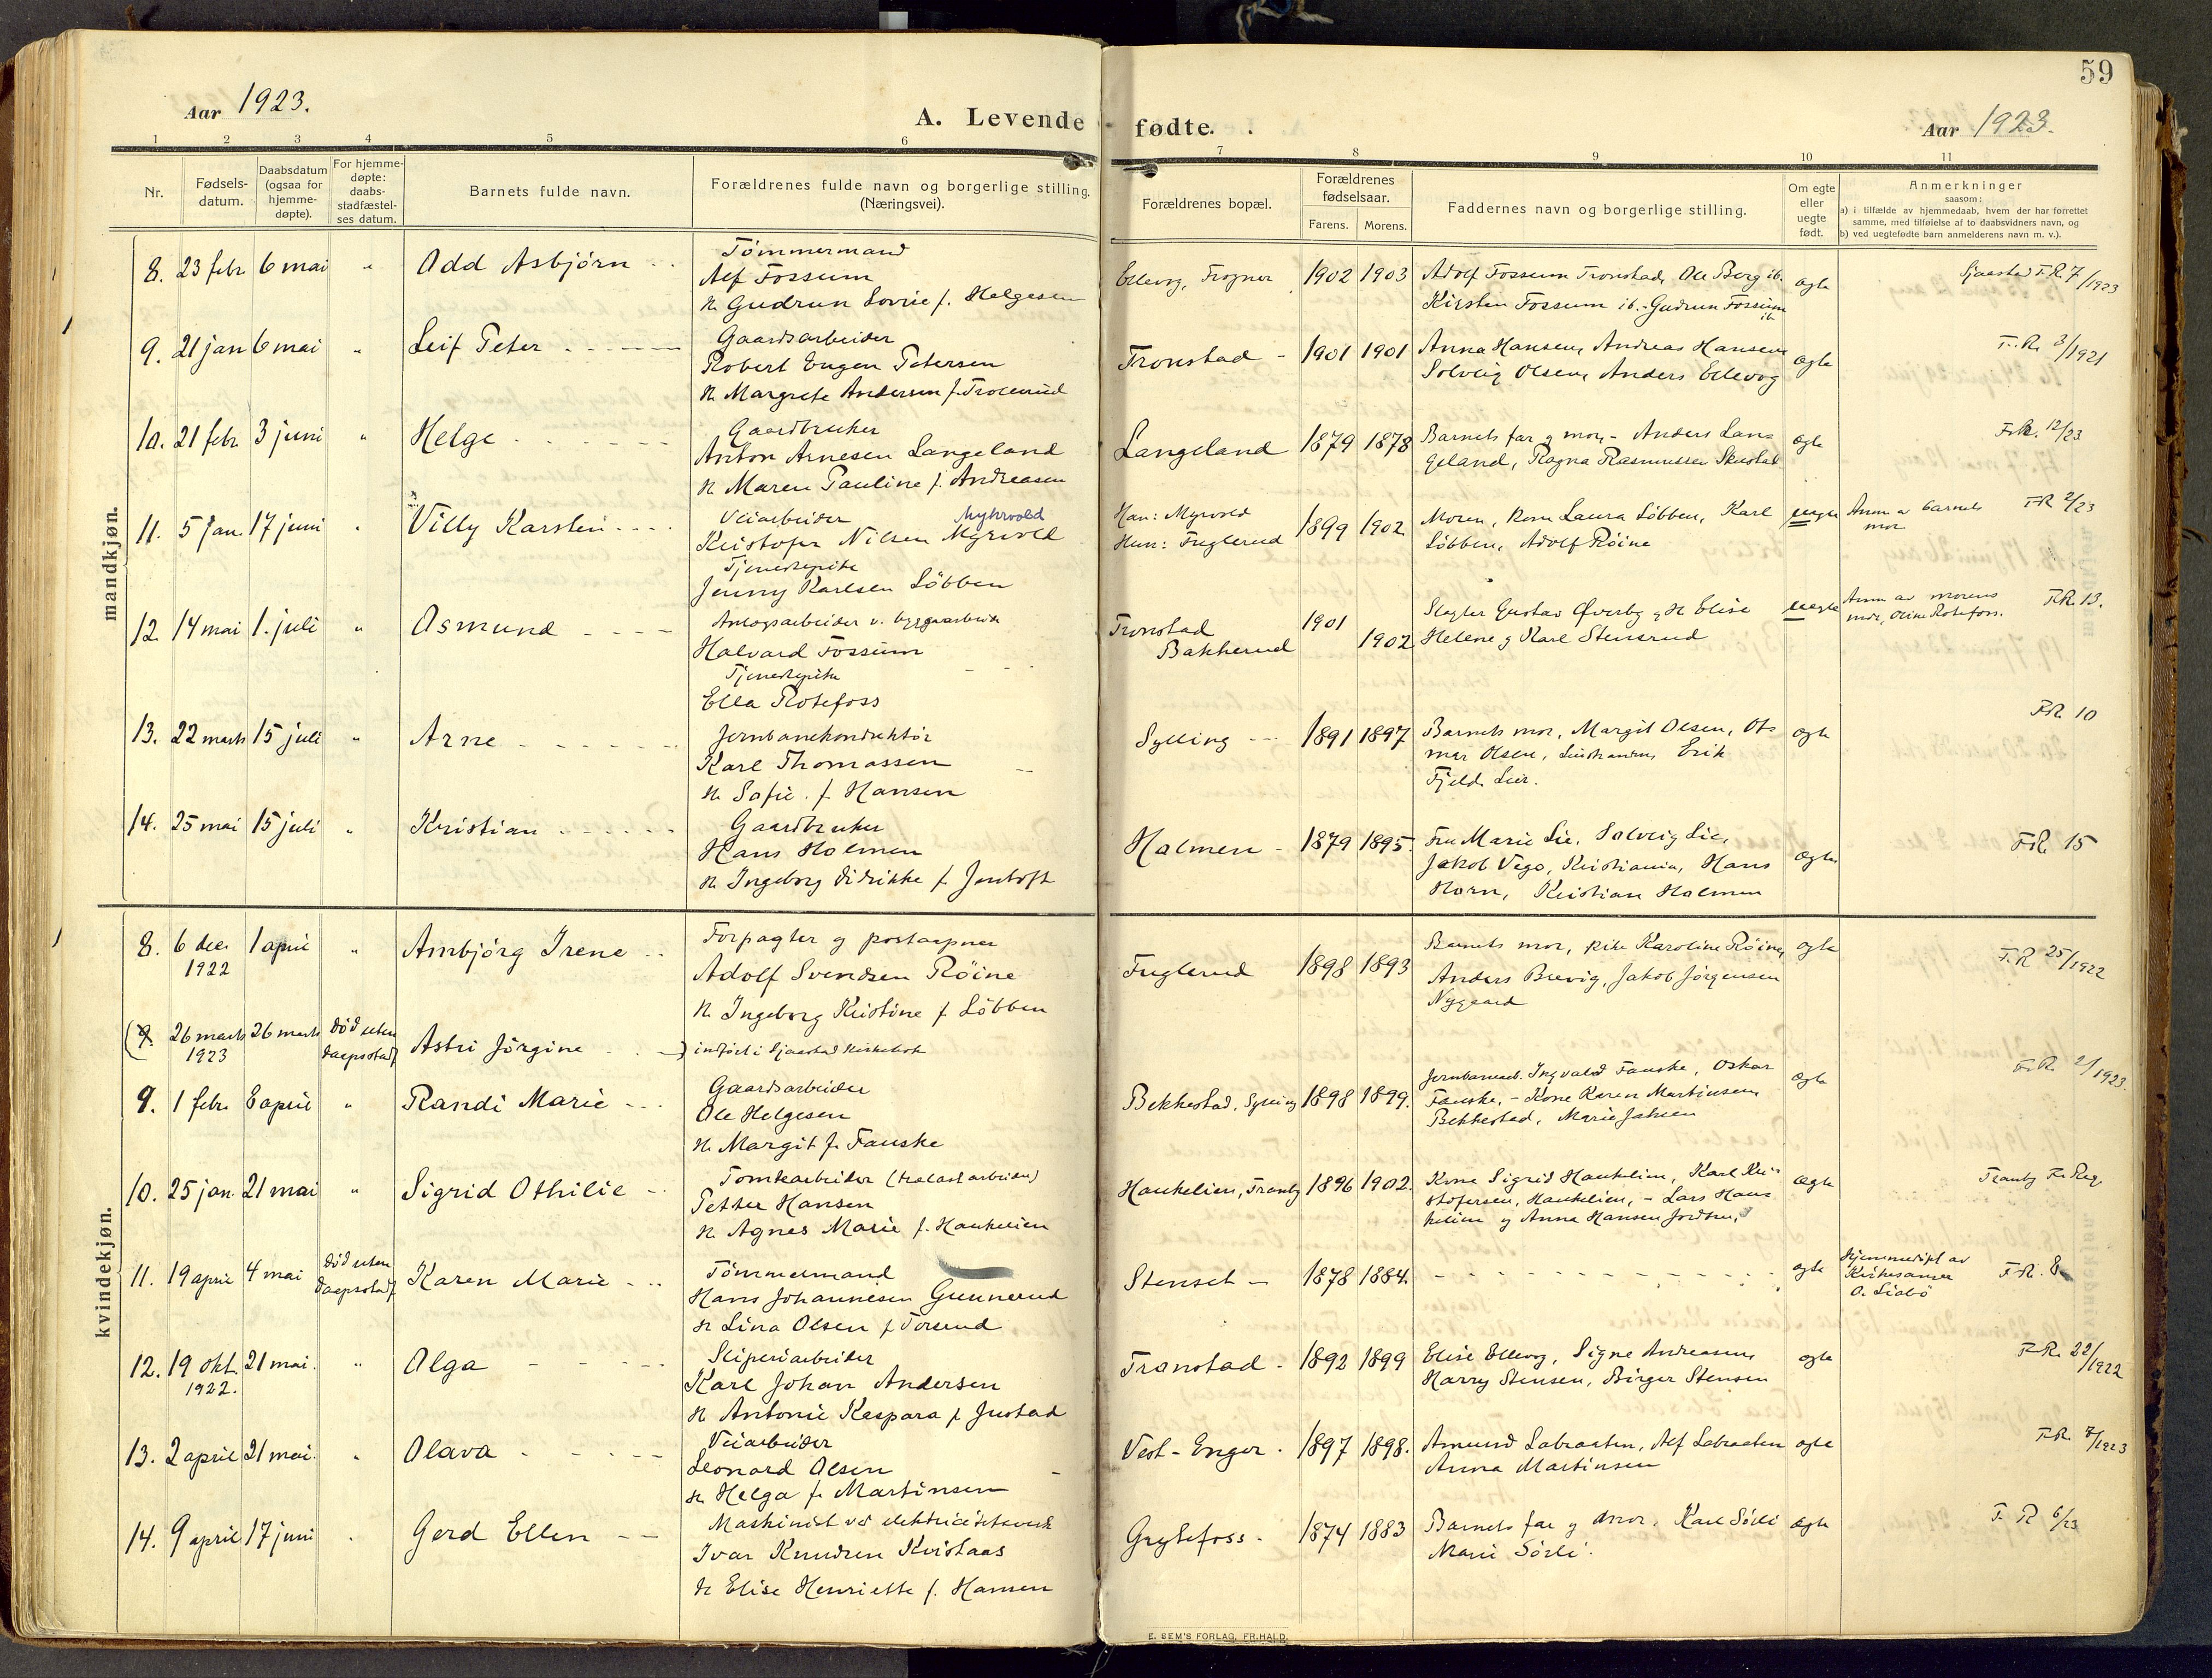 59
Aar 1923.
A. Levende fødte.
Aar 1923.
1 2 3 4 5 6 7 8 9 10 11
Nr.
Fødsels-
datum.
Daabsdatum
(ogsaa for
hjemme-
døpte).
For hjemme-
døpte:
daabs-
stadfæstel-
ses datum.
Barnets fulde navn.
Forældrenes fulde navn og borgerlige stilling.
(Næringsvei).
Forældrenes bopæl.
Forældrenes
fødselsaar.
Farens. Morens.
Faddernes navn og borgerlige stilling.
Om egte
eller
uegte
født.
Anmerkninger
saasom:
a) i tilfælde av hjemmedaab, hvem der har forrettet
samme, med tilføielse af to daabsvidners navn, og
b) ved uegtefødte barn anmelderens navn m. v.).
mandkjøn.
8. 23 febr 6 mai " Odd Asbjörn
Tömmermand
Alf Fossum
h. Gudrun Lovise f. Helgesen
Ellevog, Frogner 1902 1903
Adolf Fossum Tronstad, Ole Berg ib.
Kirsten Fossum ib. - Gudrun Fossum
ib
egte
Sjaastad F.R. 7/1923
9. 21 jan 6 mai " Leif Peter
Gaardsarbeider
Robert Eugen Petersen
h. Margrete Andersen f. Trollerud
Tronstad - 1901 1901
Anna Hansen, Andreas Hansen,
Solveig Olsen, Anders Ellevog
egte
F.R. 3/1921
10. 21 febr 3 juni " Helge
Gaardbruker
Anton Arnesen Langeland
h. Maren Pauline f. Andreasen
Langeland 1879 1878
Barnets far og mor, - Anders Lan=
geland, Ragna Rasmussen
egte
F.R. 12/23
11. 5 jan. 17 juni " Villy Karsten
Veiarbeider Myhrvold
Kristofer Nilsen Myrvold
Tjenestepike
Jenny Karlsen Löbben
Han: Myrvold
Hun: Fuglerud
1899 1902
Moren, Kone Laura Löbben, Karl
Löbben, Adolf Röine
uegte
Anm. av barnets
mor
FR 2/23
12. 14 mai 1. juli " Asmund
Anlægsarbeider
Halvard Fossum
Tjenestepike
Ella Rotefoss
Tronstad
Bakkerud
1901
1902
Slagter Gustav Øverby og H. Elise
Helene og Karl Stensrud
uegte
Anm av morens
mor, Oline Rotefoss.
F.R. 13.
13. 22 marts 15 juli " Arne
Jernbanekonduktör
Karl Thomassen
h. Sofie f. Hansen
Sylling 1891 1897
Barnets mor, Margit Olsen, Ot=
mar Olsen, Erik
Fjeld, Lier.
egte
F.R. 10
14. 25 mai 15 juli " Kristian
Gaardbruker
Hans Holmen
h. Ingeborg Didrikke f. Jentoft
Holmen - 1879 1895.
Fru Marie Lie, Solveig Lie,
Jakob Vego, Kristiania, Hans
Horn, Kristian Holmen
egte
F.R. 15
kvindekjøn.
8. 6 dec. 1 april " Arnbjörg Irene
1922
Forpagter og postaapner
Adolf Svendsen Röine
h. Ingeborg Kristine f. Löbben
Fuglerud 1898 1893
Barnets mor, pike Karoline Röine,
Anders Brevig, Jakob Jørgensen
Nygaard
egte
F.R 25/1922
(9. 26 marts 26 marts död uten Astri Jörgine )
1923 daapsstadf
indført i Sjaastad Kirkebok
9. 1 febr. 8 april " Randi Marie
Gaardsarbeider
Ole Helgesen
h. Margit f. Fauske
Bekkestad, Sylling 1898 1899.
Jernbanearb. Ingvald Fauske, Oskar
Fauske, - Kone Karen Martinsen,
Bekkestad, Marie Jahren
egte
F.R. 2/1923.
10. 25 jan. 21 mai " Sigrid Othilie
Tomtearbeider (trælastarbeider)
Petter Hansen
h. Agnes Marie f. Haukelien
Haukelien, Tranby 1896 1902.
Kone Sigrid Haukelien, Karl Kri=
stofersen, Haukelien, - Lars Hau=
kelien og Anna Hansen
egte
Tranby F. Reg.
11. 19 april 4 mai död uten Karen Marie
daapsstadf
Tömmermand
Hans Johannesen Gunnerud
h. Lina Olsen f. Torsrud
Stenset - 1878 1884.
egte
Hjemmedøpt av
Kirkesanger
O. Siabö
F.R. 8
12. 19 okt. 21 mai. " Olga
1922.
Sliperiarbeider
Karl Johan Andersen
h. Antonie Kaspara f. Justad
Tronstad - 1892 1899
Elise Ellevog, Signe Andreasen,
Harry Stensen, Birger Stensen
egte
F.R. 22/1922
13. 2 april 21 mai. " Olava
Veiarbeider
Leonard Olsen
h. Helga f. Martinsen
Vest-Enger. 1897 1898.
Amund Labraaten, Alf Labraaten
Anna Martinsen
egte
F.R. 7/1923
14. 9 april 17 juni " Gerd Ellen
Maskinist ved elektricitetsverk
Ivar Knudsen Kvistaas
h. Elise Henriette f. Hansen
Grytefoss. 1874 1883
Barnets far og mor. Karl Sörli
Marie Sörli.
egte
F. R 6/23
E. SEM'S FORLAG, FR.HALD.